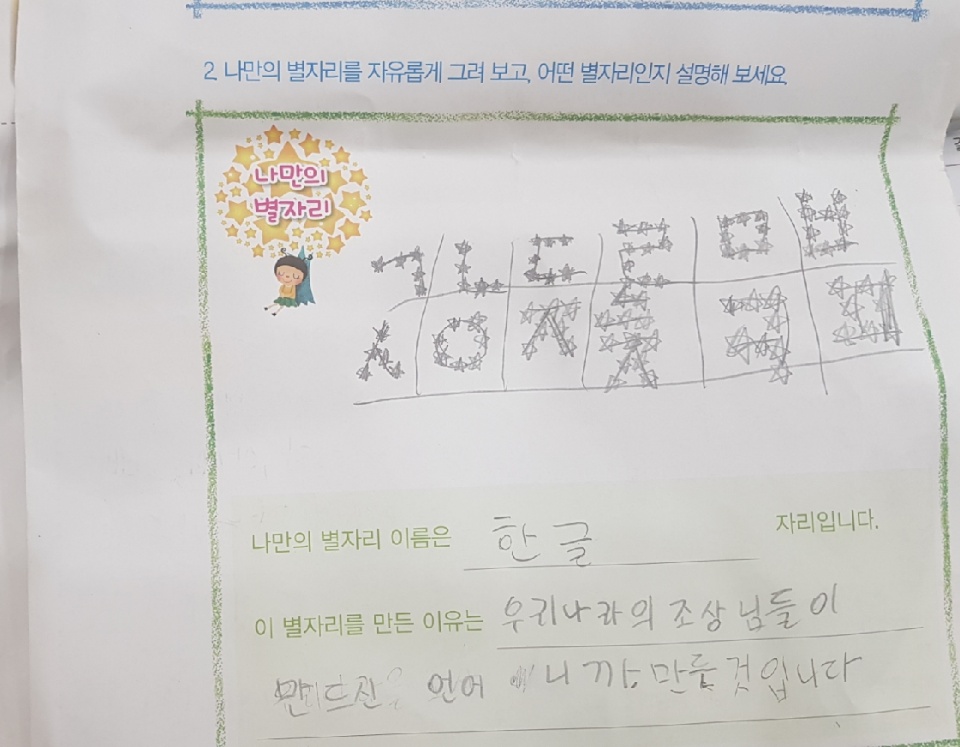 2. 나만의 별자리를 자유롭게 그려 보고, 어떤 별자리인지 설명해 보세요.
나만의
별자리
ㄱ ㄴ ㄷ ㄹ ㅁ ㅂ
ㅅ ㅇ ㅈ ㅊ ㅋ ㅌ
나만의 별자리 이름은 한글 자리입니다.
이 별자리를 만든 이유는 우리나라의 조상님들이
언어 니까 만든것입니다